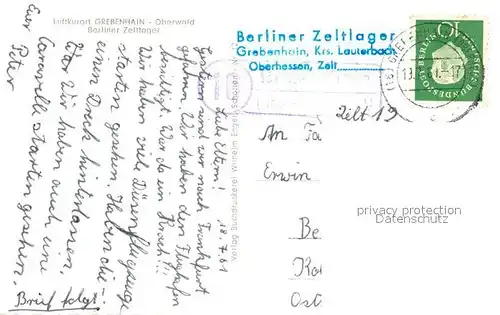 Luftkurort GREBENHAIN - Oberwald
Berliner Zeltlager
Berliner Zeltlager
Grebenhain, Krs. Lauterbach
Oberhessen, Zelt
Zelt 19
18.7.61
Liebe Eltern!
Gestern sind wir nach Frankfurt
gefahren. Wir haben den Flughafen
besichtigt. War da ein Krach!!!
Wir haben viele Düsenflugzeuge
starten gesehen. Haben die
einen Dreck hinterlassen.
Wir haben auch eine
Caravelle starten gesehen.
Euer
Peter
Brief folgt!
Verlag Buchdruckerei Wilhelm Engel, Schotten
An Fa
Erwin
Be
Ost
privacy protection
Datenschutz